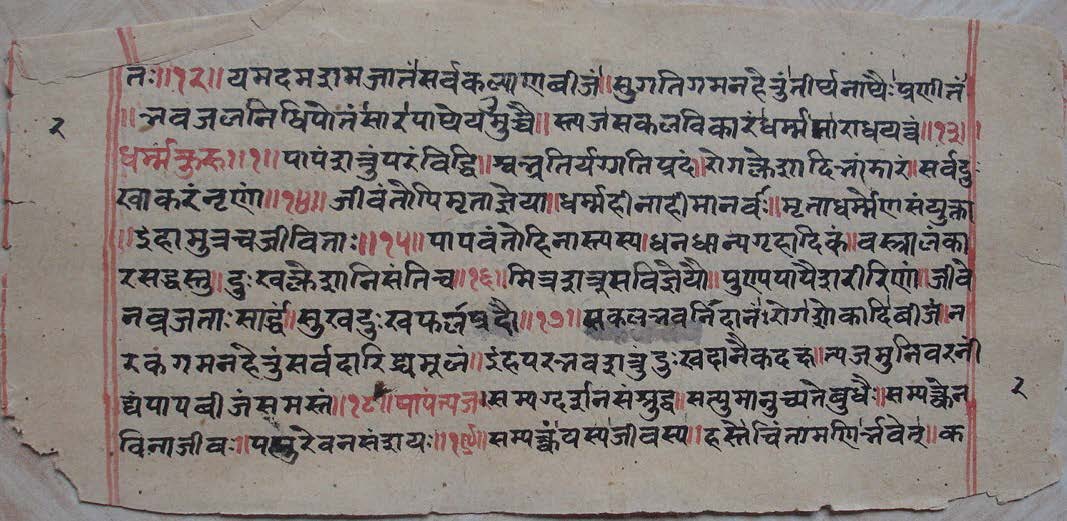 तः॥१२॥यमदमशमजातंसर्वकल्याणबीजं॥सुगतिगमनहेतुंतीर्थनाथैःप्रणीतं
॥भवजलनिधिपोतंसारपाथेयमुच्चै॥स्त्यजसकलविकारंधर्म्ममाराधयत्वं॥१३॥
२
धर्म्मंकुरु॥१॥पापंशत्रुंपरंविद्धि॥श्वभ्रतिर्यग्गतिप्रदं॥रोगक्लेशादिभांडारं॥सर्वदु
खाकरंनृणां॥१४॥जीवंतोपिमृताज्ञेया॥धर्म्महीनाहीमानवः॥मृताधर्म्मेणसंयुक्ता
॥इहामुत्रचजीविताः॥१५॥पापवंतोहिनास्त्यस्य॥धनधान्यगृहादिकं॥वस्त्रालंका
रसद्वस्तु॥दुःखक्लेशानिसंतिच॥१६॥मित्रशत्रूसविज्ञेयौ॥पुण्यपापौशरीरिणां॥जीवे
नव्रजताःसार्द्धं॥सुखदुःखफलप्रदौ॥१७॥सकलभवनिदानं॥रोगशोकादिबीजं॥न
रकगमनहेतुंसर्वदारिद्र्यमूलं॥इंहपरभवशत्रुंदुःखदानैकदक्षं॥त्यजमुनिवरनिं
द्यंपापबीजंसमस्तं॥१८॥पापंत्यज॥सम्यग्दर्शनसंसुद्ध॥सत्पुमानुच्यतेबुधैः॥सम्यक्त्वेन
२
विनाजीवः॥पसुरेवनसंशयः॥१९॥सम्यक्त्वंयस्यजीवस्य॥हस्तेचिंतामणिर्भवेत्॥क